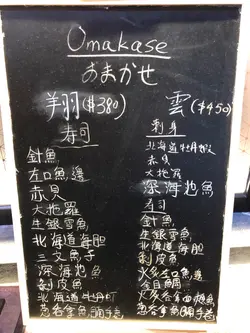 Omakase
おまかせ
羽 ($380)
寿司
針魚
左口魚邊
赤貝
大地羅
生銀雪魚
北海道海胆
三文魚子
深海池魚
剝皮魚
北海道牡丹
魚腩手卷
雲 ($450)
刺身
北海道牡丹蝦
赤貝
大地羅
深海池魚
寿司
針魚
生銀雪魚
北海道海胆
剝皮魚
火炙左口魚邊
金目鯛
火炙
魚腩手卷